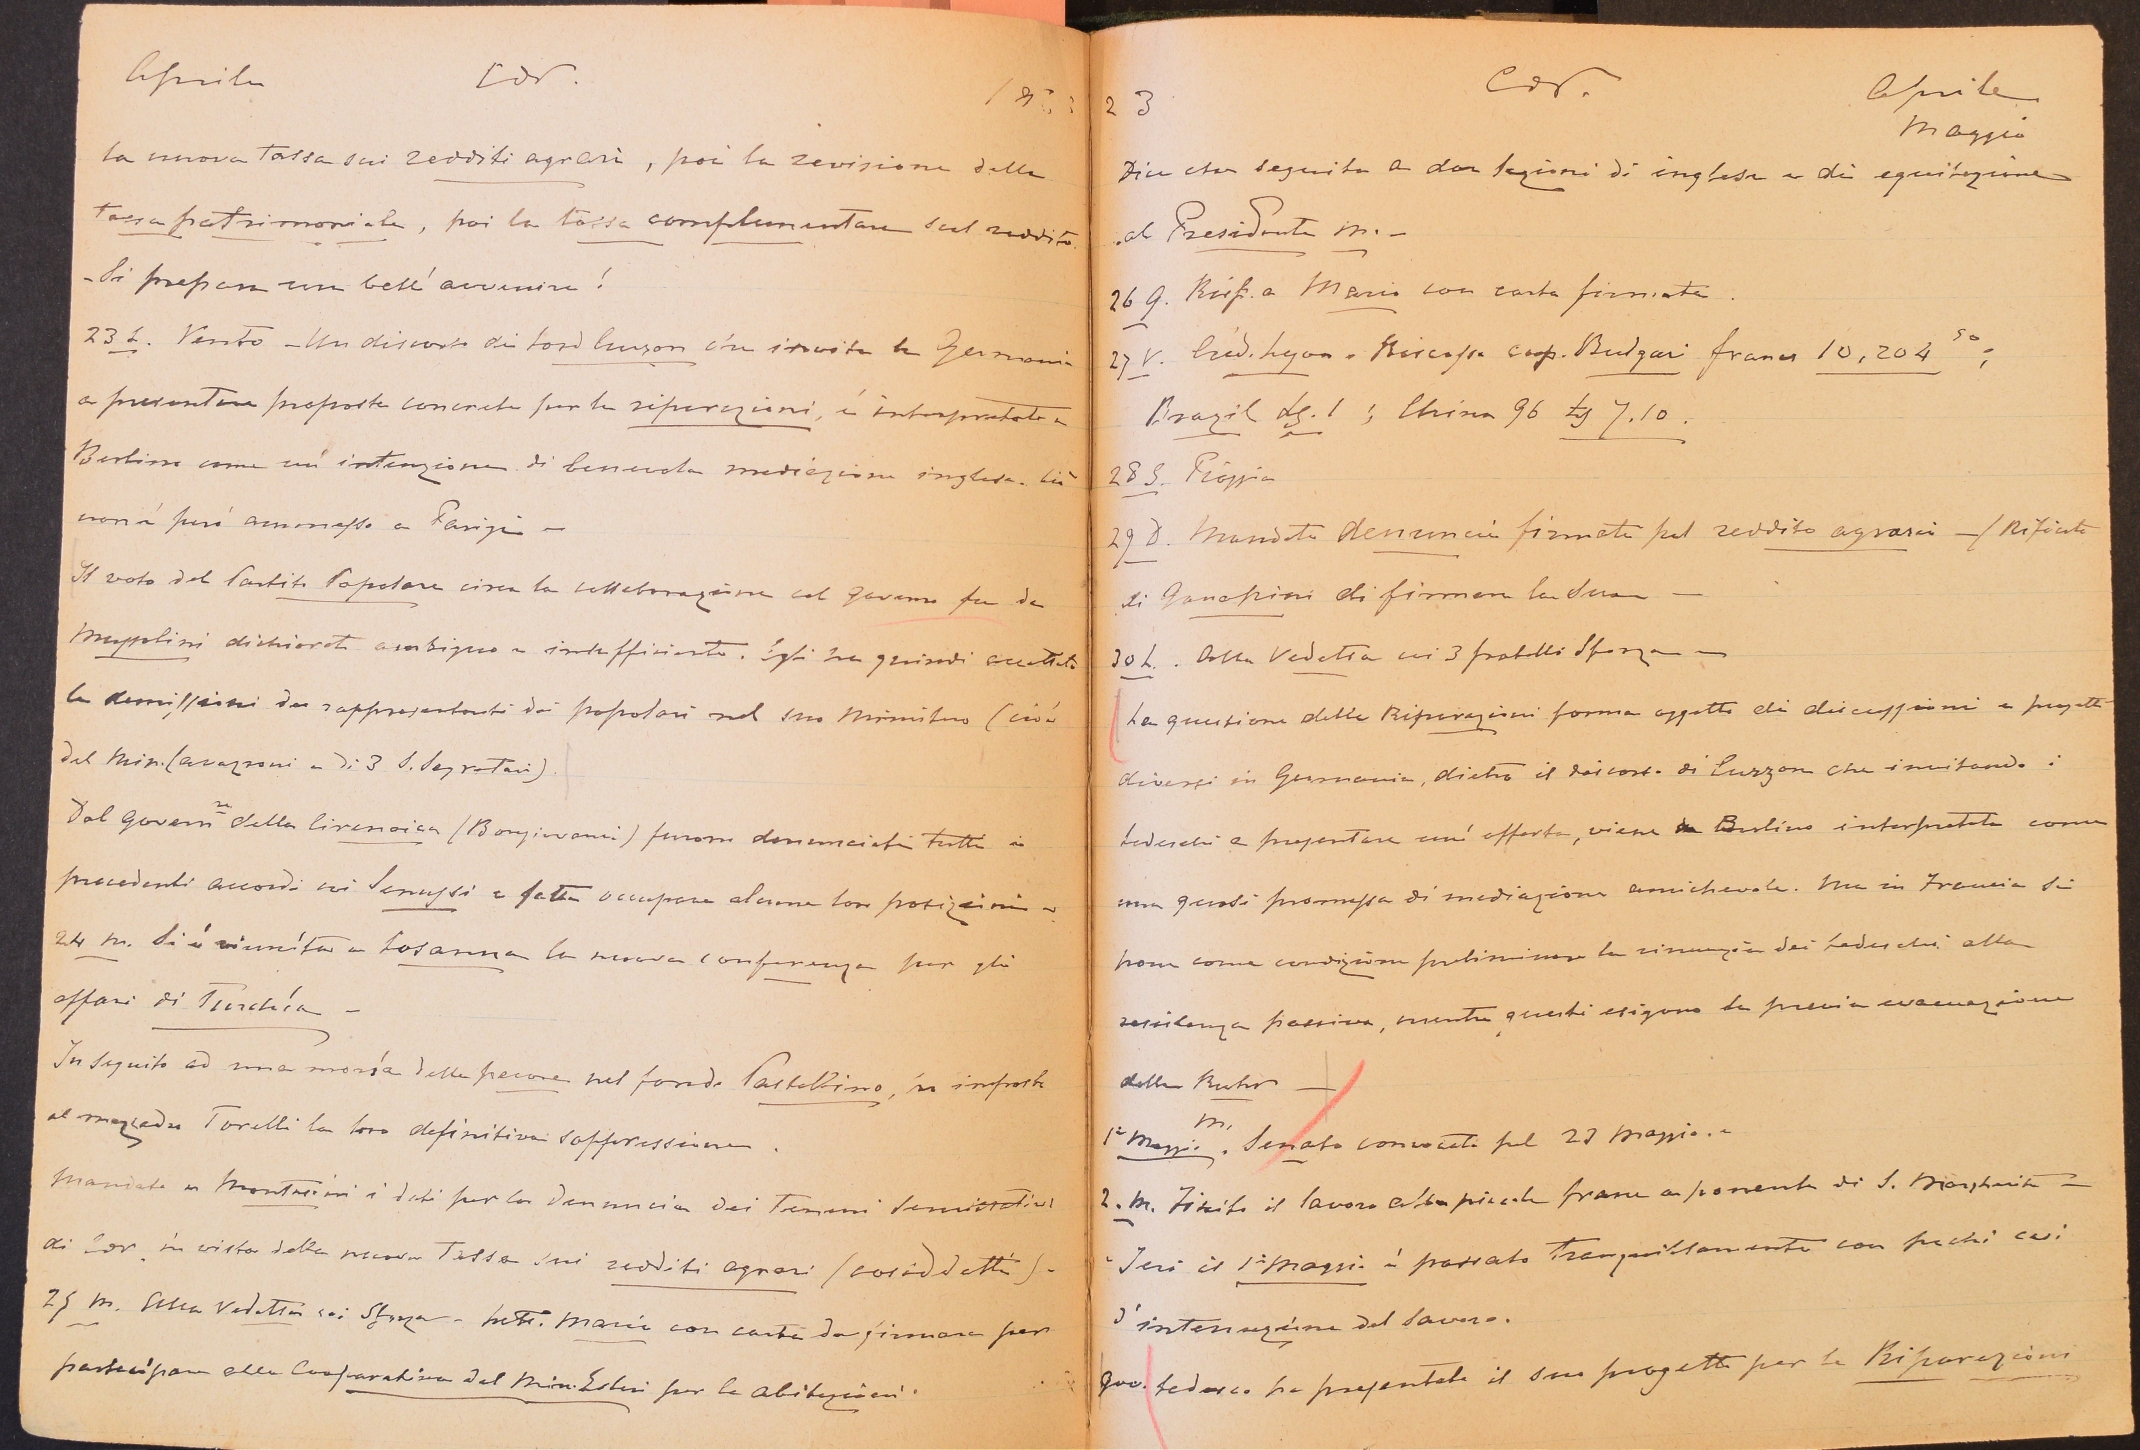 Aprile Cor. 192
la nuova tassa sui redditi agrari, poi la revisione della
tassa patrimoniale, poi la tassa complementare sul reddito.
- Si prepara un bell'avvenire!
23 L. Vento - Un discorso di Lord Curzon che invita la Germania
a presentare proposte concrete per le riparazioni, è interpretato a
Berlino come un'intenzione di benevola mediazione inglese. Ciò
non è però ammesso a Parigi -
Il voto del Partito Popolare circa la collaborazione col governo fu da
Mussolini dichiarato ambiguo e insufficiente. Egli ha quindi accettato
le demissioni dei rappresentanti dei popolari nel suo Ministero (cioè
del Min. Cavazzoni e di 3 S. Segretari).
Dal Govern.re della Cirenaica (Bongiovanni) furono denunciati tutti i
precedenti accordi coi Senussi e fatto occupare alcune loro posizioni -
24 M. Si è riunita a Losanna la nuova conferenza per gli
affari di Turchia -
In seguito ad una moria delle pecore nel fondo Castellino, ho imposto
al mezzadro Torelli la loro definitiva soppressione.
Mandato a Montesini i dati per la denuncia dei terreni
di Cor. in vista della nuova Tassa sui redditi agrari (cosiddetti) -
25 M. Alla Vedetta coi Sforza - Lett. Mario con carta da firmare per
partecipare alla Cooperativa del Min. Esteri per le abitazioni.
23 Cor. Aprile
Maggio
Dice che seguita a dar lezioni di inglese e di equitazione
al Presidente M. -
26 G. Risp. a Mario con carta firmata.
27 V. Créd. Lyon. Riscosso coup. Bulgari franchi 10,204 50;
Brazil Lg. 1; China 96 Lg 7.10.
28 S. Pioggia
29 D. Mandata denuncia firmata pel reddito agrario - (Rifiuto
di firmare la sua -
30 L. Alla Vedetta coi 3 fratelli Sforza -
La questione delle Riparazioni forma oggetto di discussioni e progetti
diversi in Germania, dietro il discorso di Curzon che invitando i
tedeschi a presentare un'offerta, viene da Berlino interpretato come
una quasi promessa di mediazione amichevole. Ma in Francia si
pone come condizione preliminare la rinunzia dei tedeschi alla
resistenza passiva, mentre questi esigono la previa evacuazione
della Ruhr -
1° Maggio M. Senato convocato pel 23 Maggio. -
2. M. Finito il lavoro alla piccola frana a ponente di S. Margherita -
- Ieri il 1° Maggio è passato tranquillamente con pochi casi
d'interruzione del lavoro.
Gov. tedesco ha presentato il suo progetto per le Riparazioni